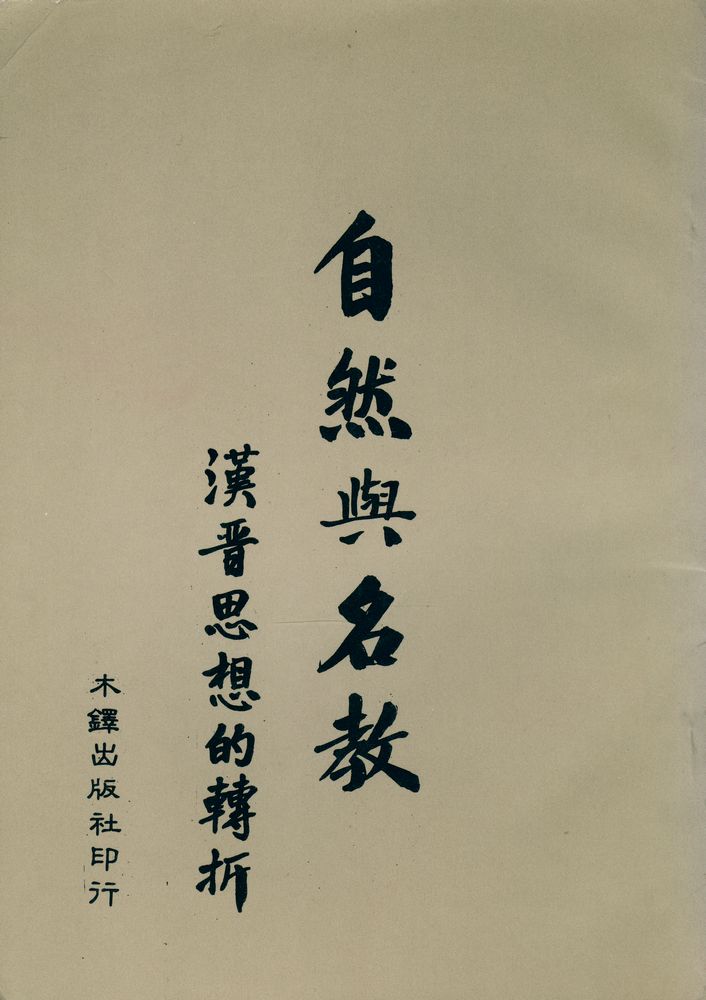 自然與名教
漢晋思想的轉折
木鐸出版社印行